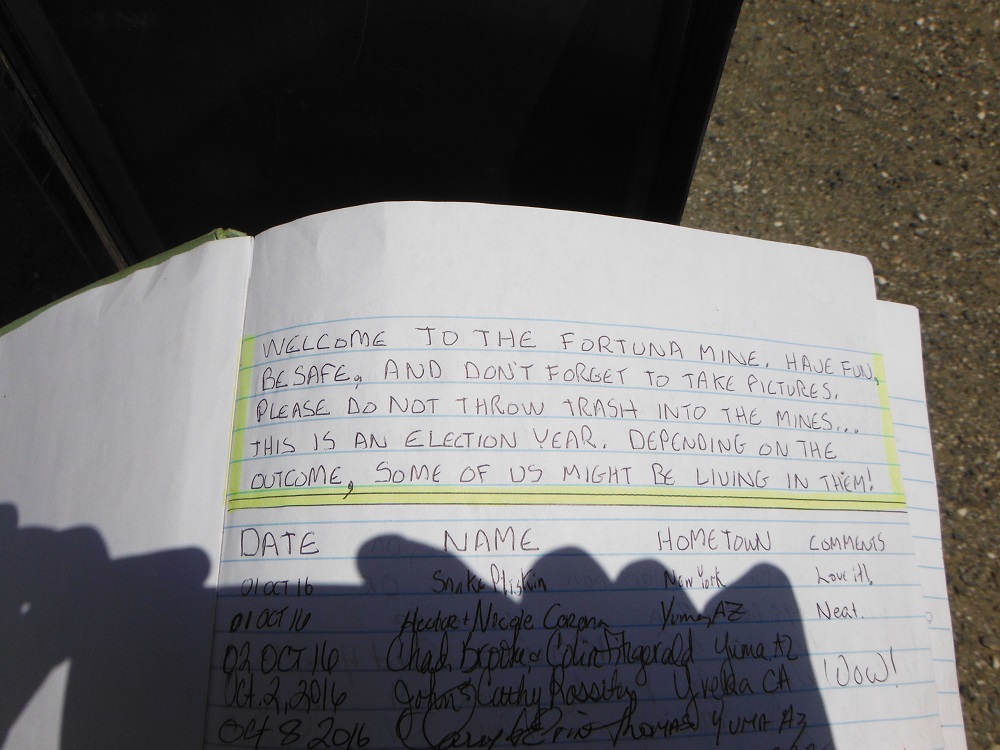 WELCOME TO THE FORTUNA MINE. HAVE FUN,
BE SAFE, AND DON'T FORGET TO TAKE PICTURES.
PLEASE DO NOT THROW TRASH INTO THE MINES...
THIS IS AN ELECTION YEAR. DEPENDING ON THE
OUTCOME, SOME OF US MIGHT BE LIVING IN THEM!
DATE NAME HOMETOWN COMMENTS
01 OCT 16 Snake Pliskin New York Love it!
01 OCT 16 Hector + Nicole Corona Yuma, AZ Neat.
02 OCT 16 Chad, Brooke & Colin Fitzgerald Yuma AZ Wow!
Oct. 2, 2016 John & Cathy Rossiter Yreka CA
Oct 8 2016 Thomas YUMA AZ